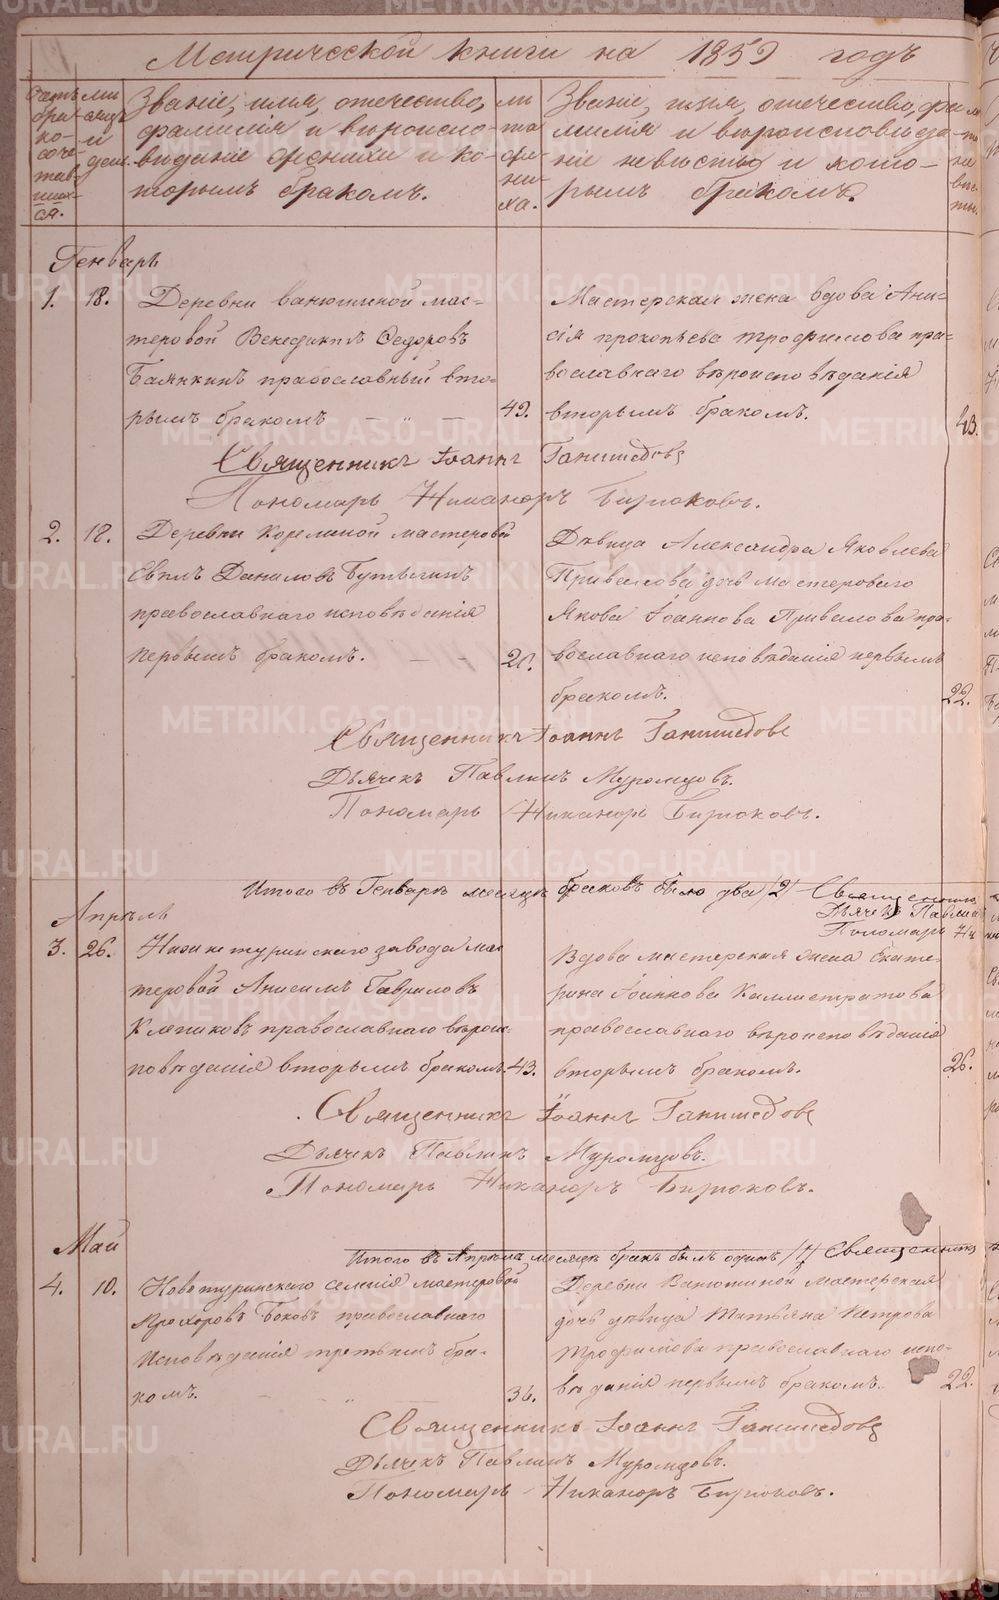 Метрической книги на 1859 годъ
Счетъ бра-ко-соче-тав-ших-ся.
Ме-сяцъ и день.
Званіе, имя, отечество,
фамилія и вѣроиспо-
вѣданіе жениха и ко-
торымъ бракомъ.
лѣ-та же-ни-ха.
Званіе, имя, отечество, фа-
милія и вѣроисповѣда-
ніе невѣсты и кото-
рымъ бракомъ.
лѣ-та не-вѣс-ты.
Генварь
1. 18. Деревни Ванюшиной мас-
теровой Венедиктъ Ѳедоровъ
православный вто-
рымъ бракомъ 49.
Мастерская жена вдова Ани-
сія Прокопьева Трофимова пра-
вославнаго вѣроисповѣданія
вторымъ бракомъ. 43.
Священникъ Іоаннъ
Пономарь Никаноръ Бирюковъ.
2. 18. Деревни Корелиной мастеровой
Даниловъ
православнаго исповѣданія
первымъ бракомъ.
Дѣвица Александра Яковлева
Привалова дочь мастероваго
Якова Іоаннова Привалова пра-
вославнаго исповѣданія первымъ
бракомъ. 22.
Священникъ Іоаннъ
Дьячекъ Павлинъ Муромцовъ.
Пономарь Никаноръ Бирюковъ.
Итого въ Генварѣ месяцѣ браковъ было два /2/ Священникъ
Дьячекъ Павлин
Пономарь Ни
Апрѣль
3. 26. Нижнетуринскаго завода мас
теровой Анисимъ Гавриловъ
Клепиковъ православнаго вѣроис-
повѣданія вторымъ бракомъ. 43.
Вдова мастерская жена Екате-
рина Іоаннова Каллистратова
православнаго вѣроисповѣданія
вторымъ бракомъ. 26.
Священникъ Іоаннъ
Дьячекъ Павлинъ Муромцовъ.
Пономарь Никаноръ Бирюковъ.
Итого въ Апрѣлѣ месяцѣ бракъ былъ одинъ /1/ Священникъ
Май
4. 10. Новотуринскаго селенія мастеровой
Прохоровъ Боковъ православнаго
исповѣданія третьимъ бра-
комъ. 36.
Деревни Ванюшиной мастерская
дочь дѣвица Татьяна Петрова
Трофимова православнаго испо-
вѣданія первымъ бракомъ. 22.
Священникъ Іоаннъ
Дьячекъ Павлинъ Муромцовъ.
Пономарь Никаноръ Бирюковъ.
METRIKI.GASO-URAL.RU